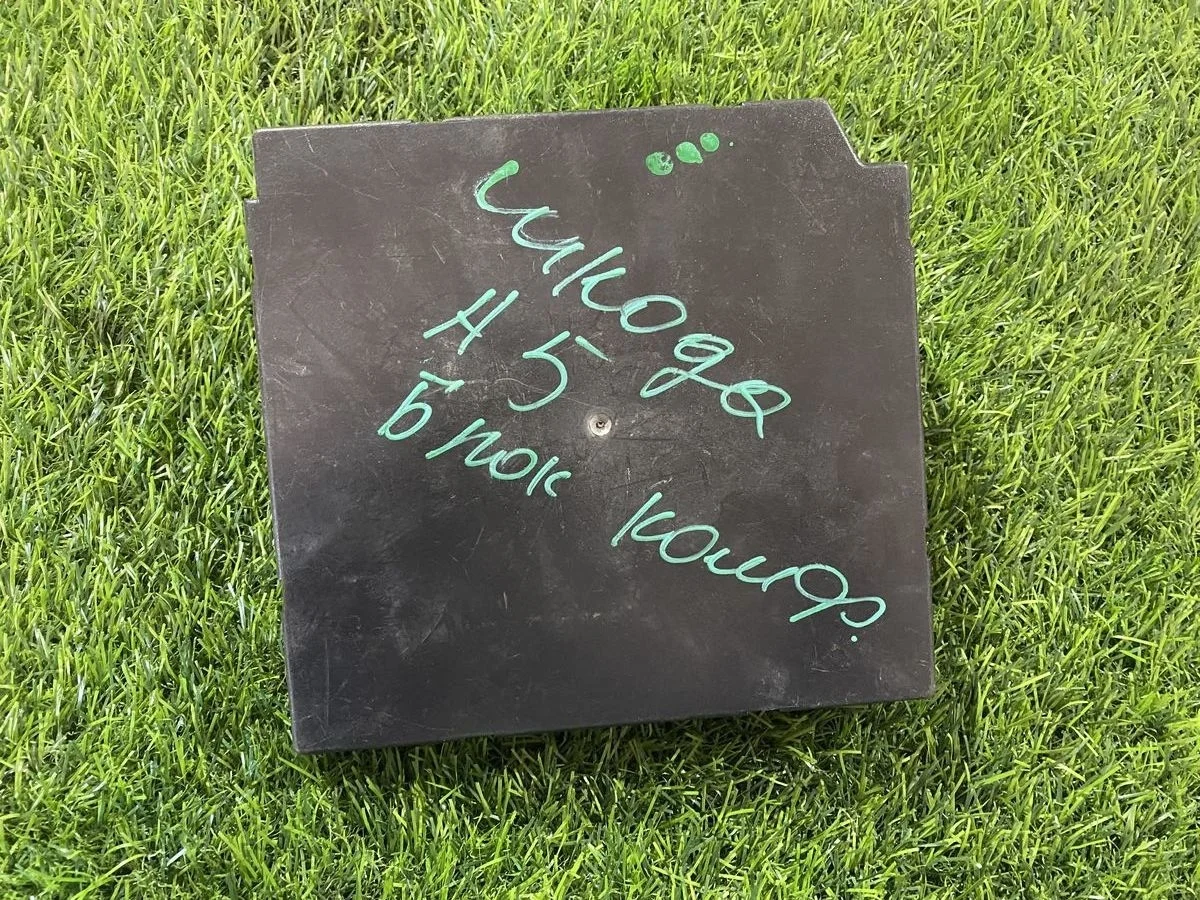 Шкода
А 5
Блок комф.